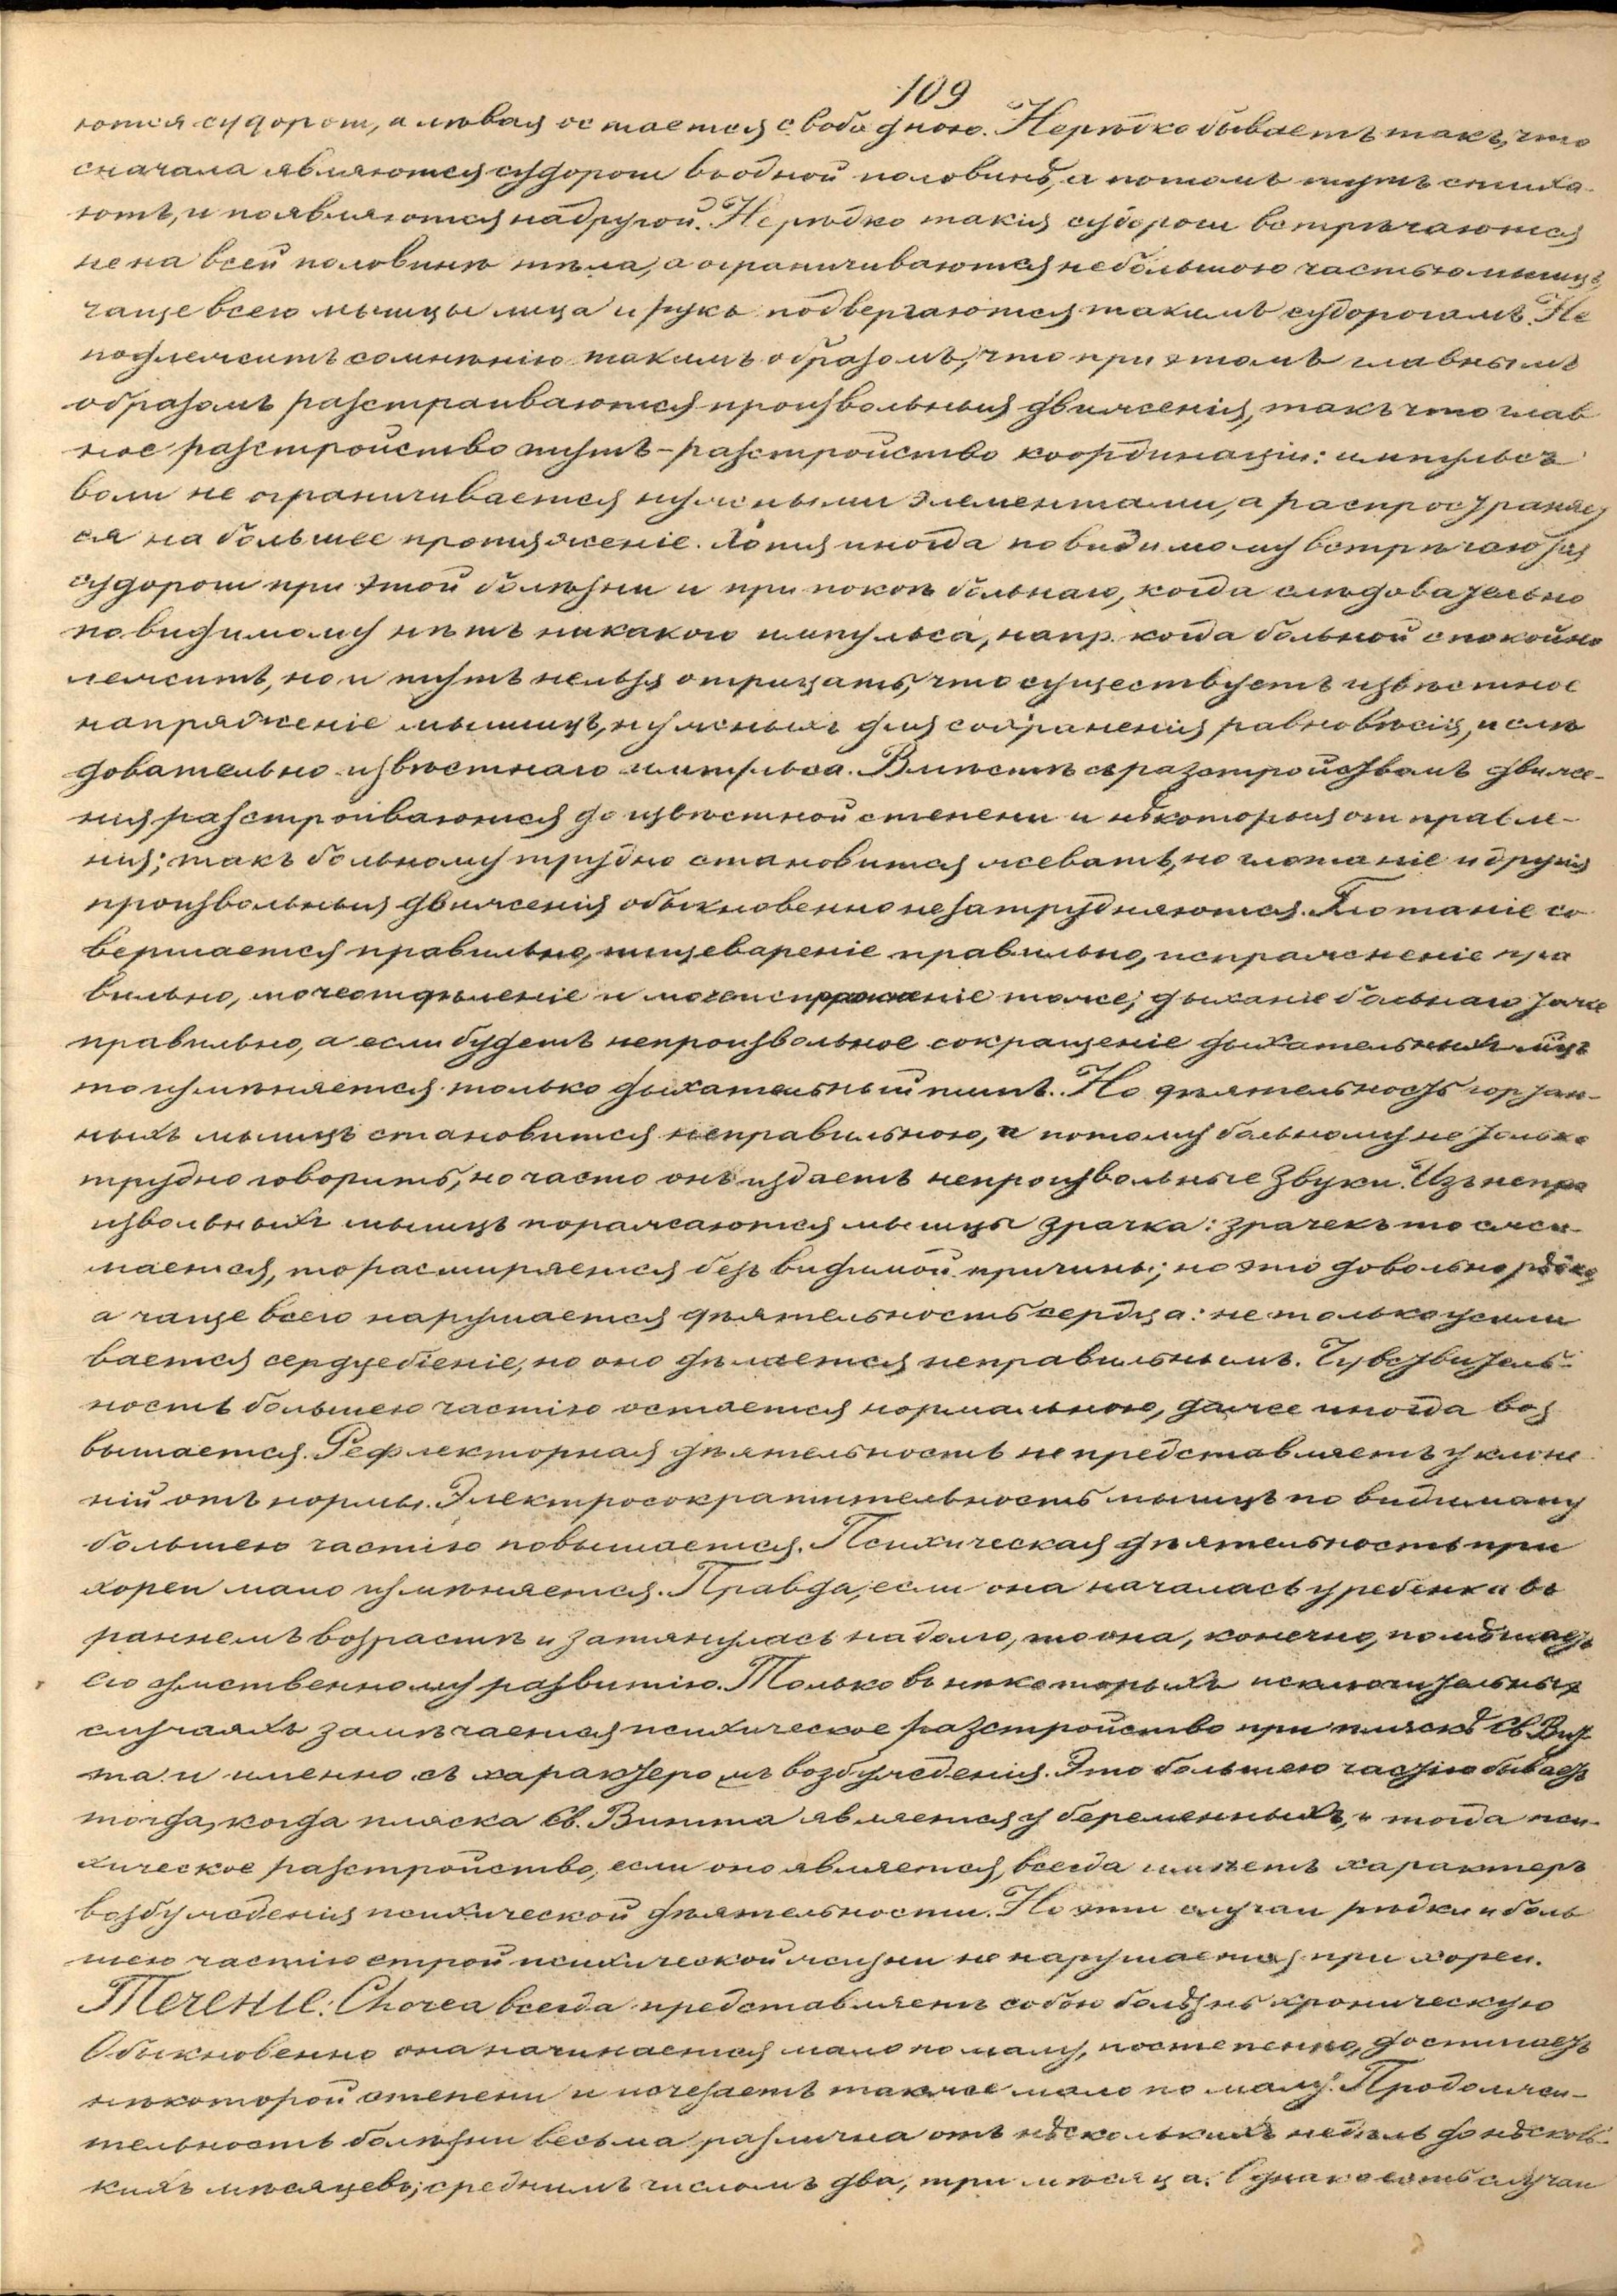 109
ются судороги, а левая остается свободною. Нерѣдко бываетъ такъ, что
сначала являются судороги въ одной половинѣ, а потомъ тутъ стиха-
ютъ, и появляются на другой. Нерѣдко такія судороги встрѣчаются
не на всей половинѣ тѣла, а ограничиваются небольшою частью мышцъ,
чаще всего мышцы лица и рукъ подвергаются такимъ судорогамъ. Не
подлежитъ сомнѣнію такимъ образомъ, что при этомъ главнымъ
образомъ разстраиваются произвольныя движенія, такъ что глав
ное разстройство тутъ - разстройство координаціи: импульсъ
воли не ограничивается нужными элементами, а распространяет
ся на большее протяженіе. Хотя иногда по видимому встрѣчаются
судороги при этой болѣзни и при покоѣ больнаго, когда слѣдовательно
по видимому нѣтъ никакого импульса, напр. когда больной спокойно
лежитъ, но и тутъ нельзя отрицать, что существуетъ извѣстное
напряженіе мышцъ, нужныхъ для сохраненія равновѣсія, и слѣ
довательно извѣстнаго импульса. Вмѣстѣ съ разстройствомъ движе-
нія разстроиваются до извѣстной степени и нѣкоторыя отправле-
нія; такъ больному трудно становится жевать, но глотаніе и другія
произвольныя движенія обыкновенно не затрудняются. Глотаніе со
вершается правильно, пищевареніе правильно, испражненіе пра
вильно, мочеотдѣленіе и мочеиспусканіе тоже; дыханіе больнаго тоже
правильно, а если будетъ непроизвольное сокращеніе дыхательныхъ мцъ
то измѣняется только дыхательный типъ. Но дѣятельность гортан-
ныхъ мышцъ становится неправильною, и потому больному не только
трудно говорить, но часто онъ издаетъ непроизвольные звуки. Изъ непро
извольныхъ мышцъ поражаются мышцы зрачка: зрачекъ то сжи-
мается, то расширяется безъ видимой причины; но это довольно рѣдко,
а чаще всего нарушается дѣятельность сердца: не только усили
вается сердцебіеніе, но оно дѣлается неправильнымъ. Чувствитель-
ность большею частію остается нормальною, даже иногда воз
вышается. Рефлекторная дѣятельность не представляетъ уклоне
ній отъ нормы. Электросократительность мышцъ по видимому
большею частію повышается. Психическая дѣятельность при
хореи мало измѣняется. Правда, если она началась у ребенка въ
раннемъ возрастѣ и затянулась надолго, то она, конечно, помѣшаетъ
его умственному развитію. Только въ нѣкоторыхъ исключительныхъ
случаяхъ замѣчается психическое разстройство при пляскѣ Св. Вит
та и именно съ характеромъ возбужденія. Это большею частію бываетъ
тогда, когда пляска Св. Витта является у беременныхъ, и тогда пси-
хическое разстройство, если оно является, всегда имѣетъ характеръ
возбужденія психической дѣятельности. Но эти случаи рѣдки и боль
шею частію строй психической жизни не нарушается при хореи.
Теченіе: Chorea всегда представляетъ собою болѣзнь хроническую
Обыкновенно она начинается мало по малу, постепенно, достигаетъ
нѣкоторой степени и исчезаетъ также мало по малу. Продолжи-
тельность болѣзни весьма различна отъ нѣсколькихъ недѣль до нѣсколь-
кихъ мѣсяцевъ; среднимъ числомъ два, три мѣсяца. Однако есть случаи